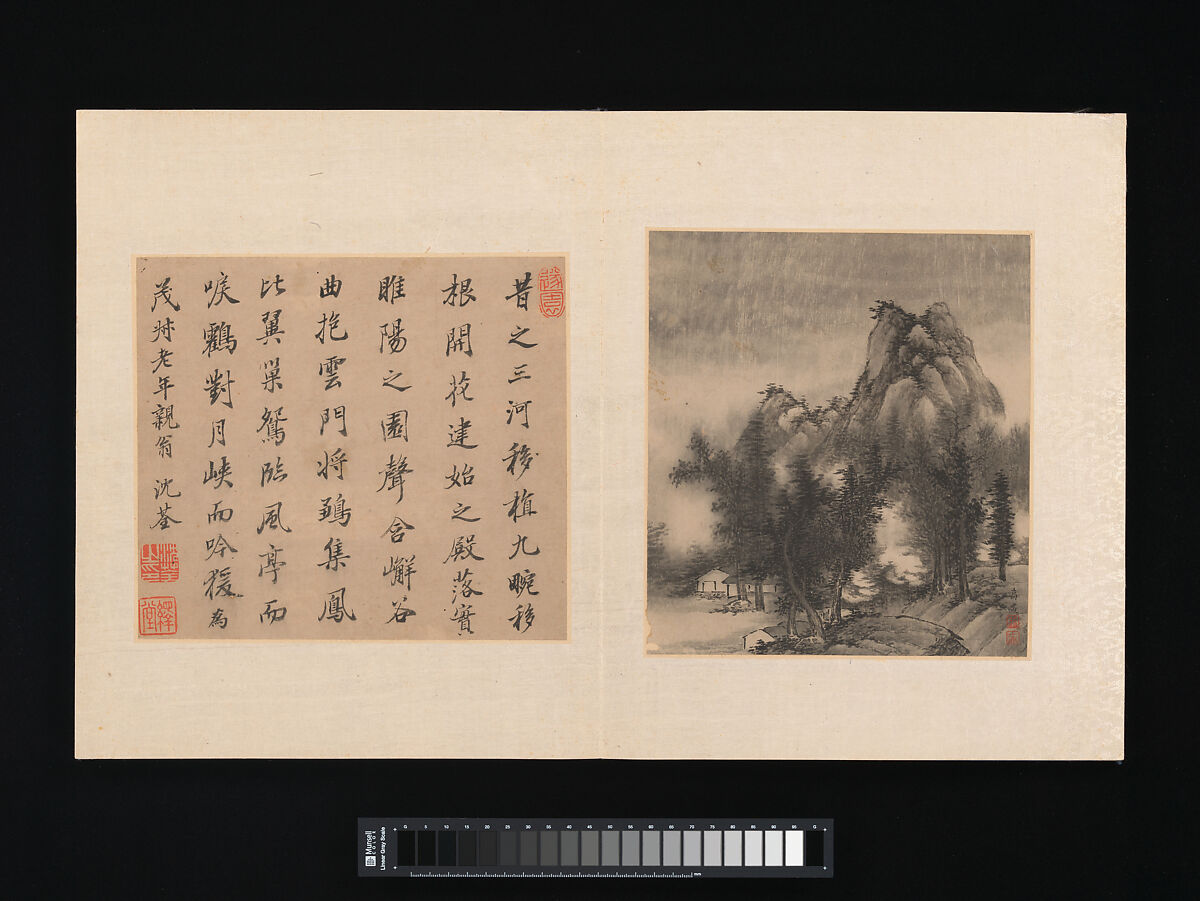 昔之三河移植九畹移
根開花建始之殿落實
睢陽之園聲含嶰谷
曲抱雲門將鵷集鳳
比翼巢鴛臨風亭而
唳鶴對月峽而吟猨為
茂叔老年親翁 沈荃
Munsell
COLOR
Linear Gray Scale
G 5 10 15 20 25 30 35 40 45 50 55 60 65 70 75 80 85 90 95 G
mm